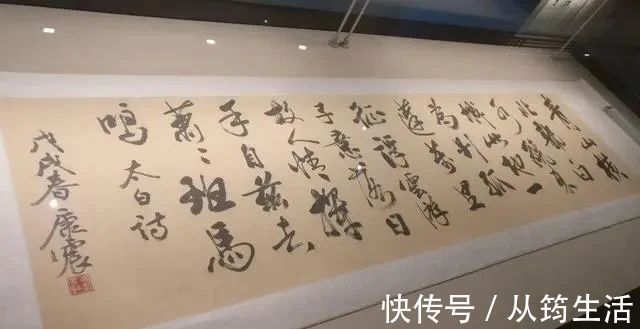 青山横
北郭白
水绕东
城此地一
为别孤
蓬万里
征浮雲游
子意落日
故人情揮
手自兹去
萧〻班馬
鳴 太白诗
戊戌春 康震
快传号 / 从筠生活